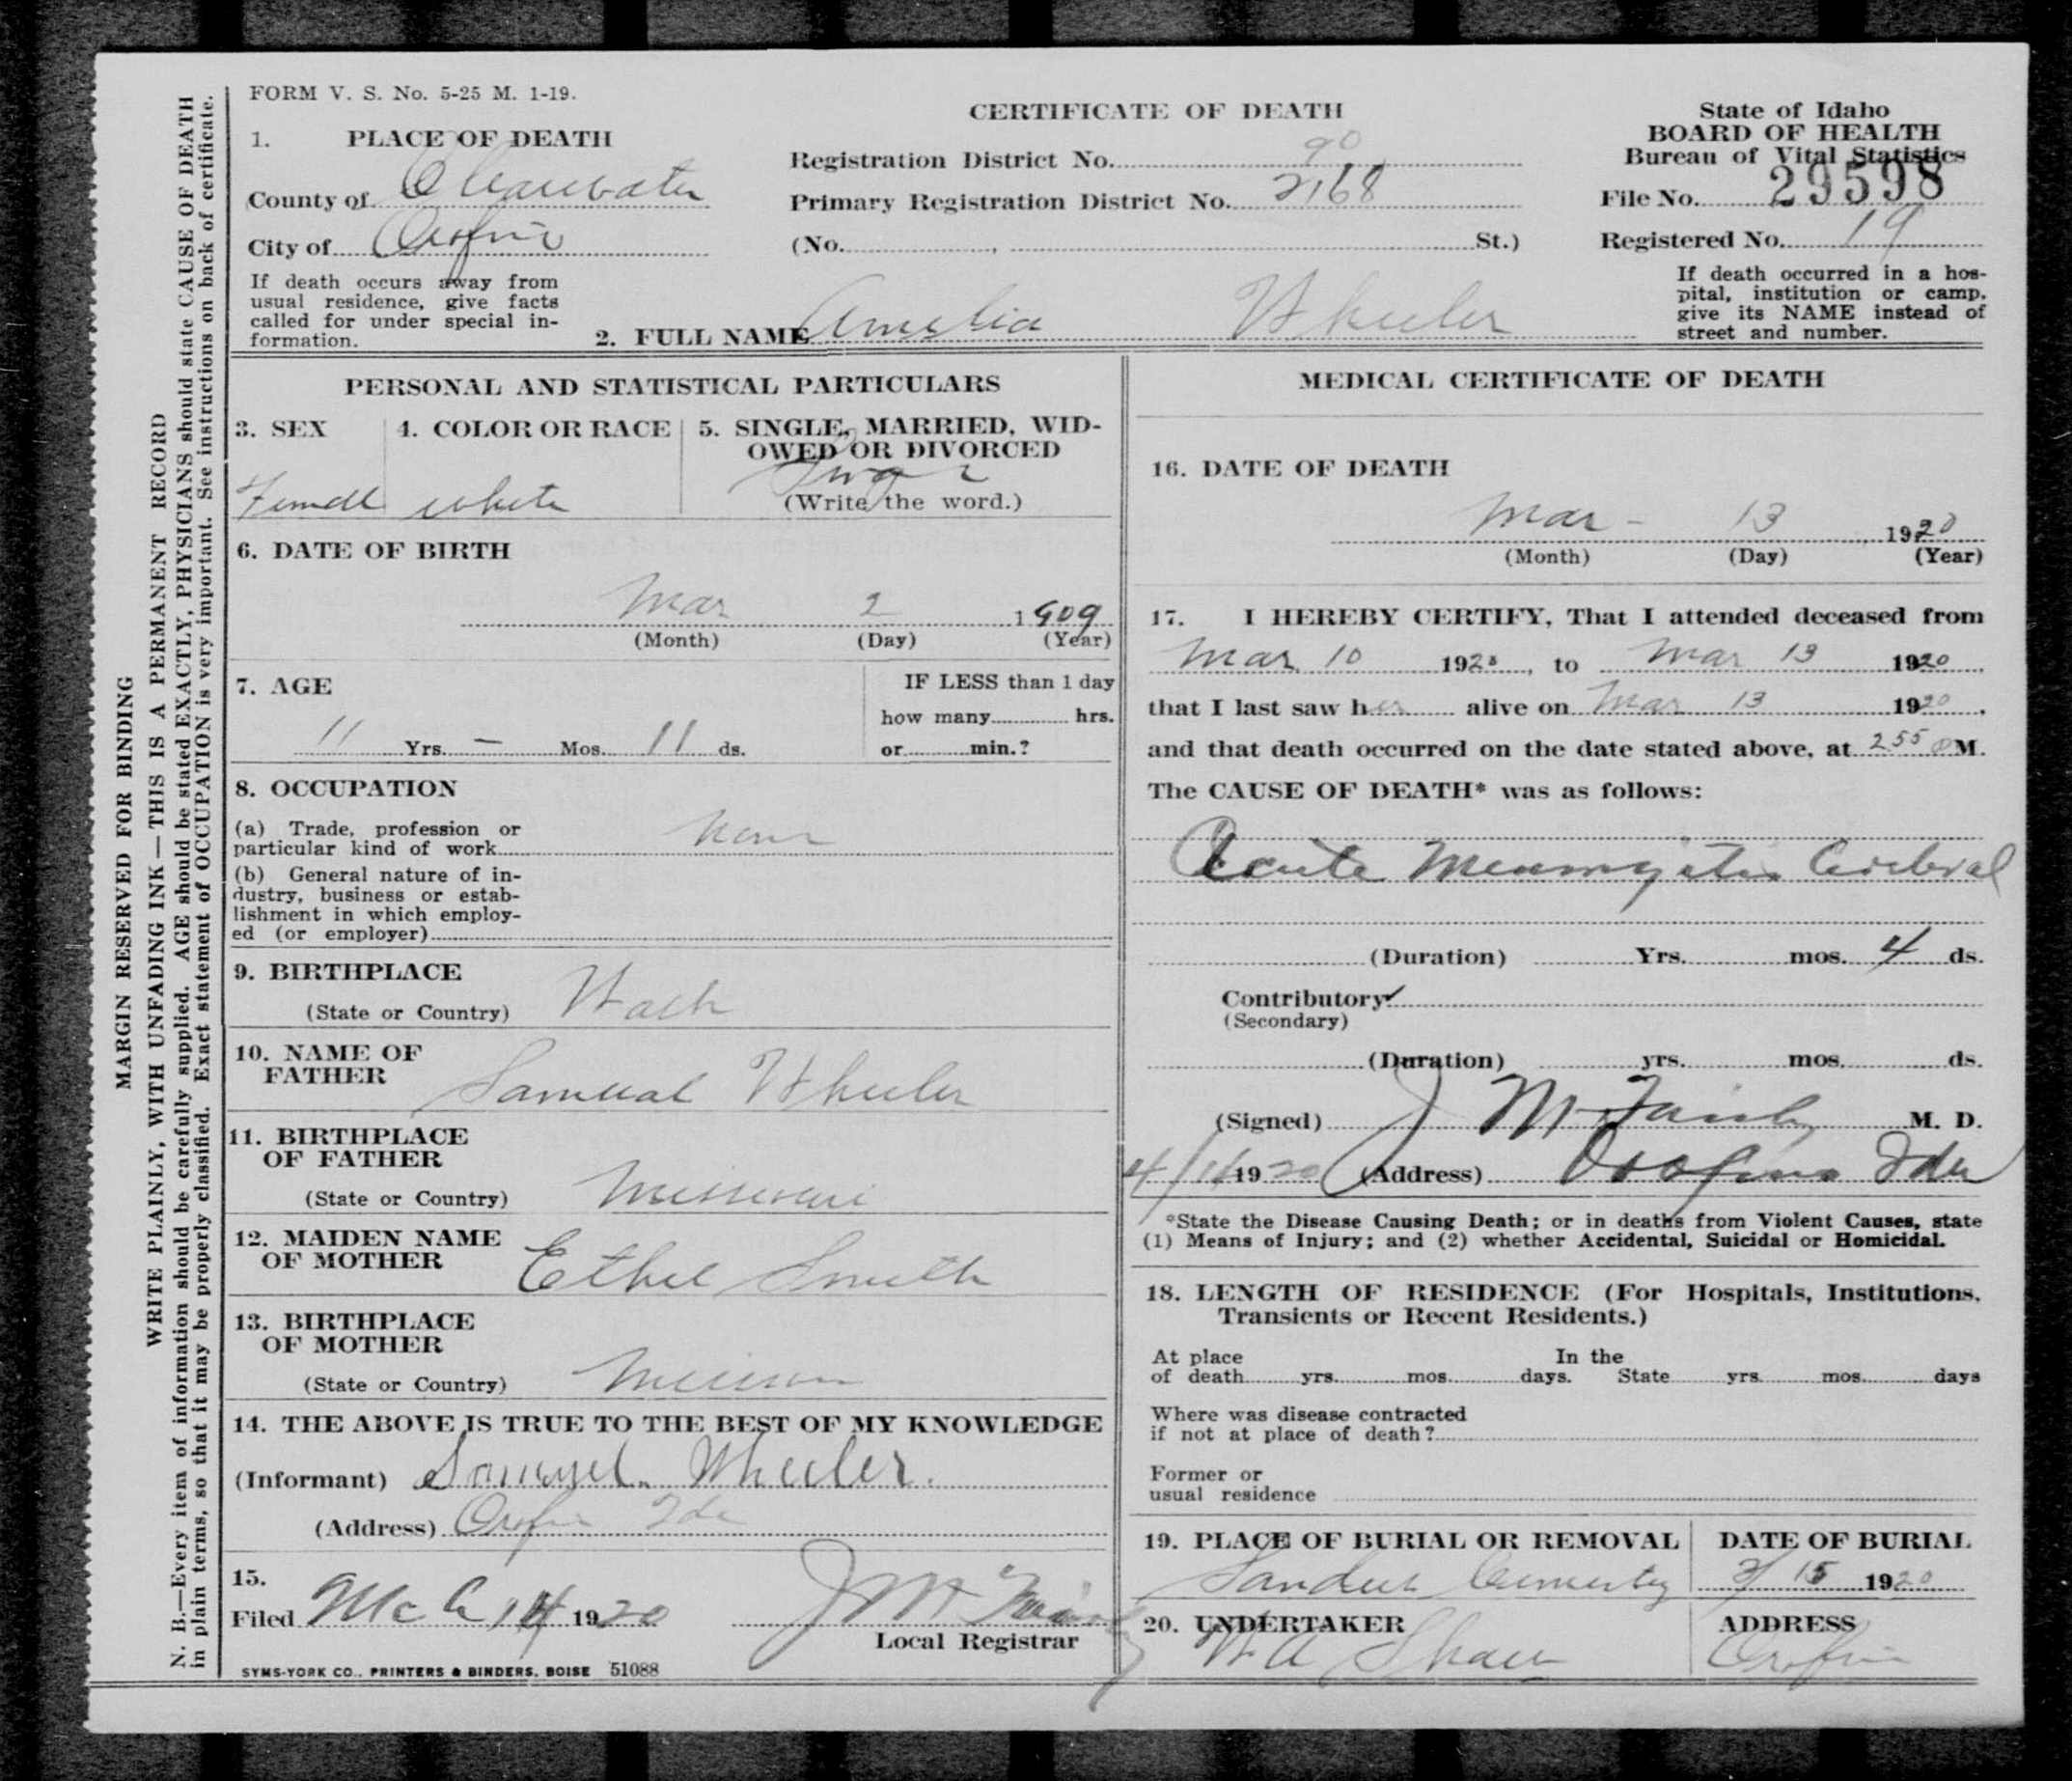 FORM V. S. No. 5-25 M. 1-19.
CERTIFICATE OF DEATH
State of Idaho
BOARD OF HEALTH
Bureau of Vital Statistics
1. PLACE OF DEATH
County of Clearwater
City of Orofino
If death occurs away from
usual residence, give facts
called for under special in-
formation.
Registration District No. 90
Primary Registration District No. 2168
(No. , St.)
File No. 29598
Registered No. 19
If death occurred in a hos-
pital, institution or camp,
give its NAME instead of
street and number.
2. FULL NAME Amelia Wheeler
PERSONAL AND STATISTICAL PARTICULARS
3. SEX
Female
4. COLOR OR RACE
white
5. SINGLE, MARRIED, WID-
OWED OR DIVORCED
(Write the word.)
6. DATE OF BIRTH
Mar 2 1909
(Month) (Day) (Year)
7. AGE
11 Yrs. - Mos. 11 ds.
IF LESS than 1 day
how many hrs.
or min.?
8. OCCUPATION
(a) Trade, profession or
particular kind of work None
(b) General nature of in-
dustry, business or estab-
lishment in which employ-
ed (or employer)
9. BIRTHPLACE
(State or Country) Wash
10. NAME OF
FATHER Samual Wheeler
11. BIRTHPLACE
OF FATHER
(State or Country) Missouri
12. MAIDEN NAME
OF MOTHER Ethel Smith
13. BIRTHPLACE
OF MOTHER
(State or Country)
14. THE ABOVE IS TRUE TO THE BEST OF MY KNOWLEDGE
(Informant) Samuel Wheeler.
(Address) Orofino Ida
15.
Filed Mch 14 1920 J M Fairly
Local Registrar
SYMS-YORK CO., PRINTERS & BINDERS, BOISE 51088
MEDICAL CERTIFICATE OF DEATH
16. DATE OF DEATH
Mar - 13 1920
(Month) (Day) (Year)
17. I HEREBY CERTIFY, That I attended deceased from
Mar 10 1920, to Mar 13 1920
that I last saw her alive on Mar 13 1920,
and that death occurred on the date stated above, at 2 55 P M.
The CAUSE OF DEATH* was as follows:
Acute Meningitis Cerebral
(Duration) Yrs. mos. 4 ds.
Contributory
(Secondary)
(Duration) yrs. mos. ds.
(Signed) J M Fairly M. D.
1920 (Address) Orofino Ida
*State the Disease Causing Death; or in deaths from Violent Causes, state
(1) Means of Injury; and (2) whether Accidental, Suicidal or Homicidal.
18. LENGTH OF RESIDENCE (For Hospitals, Institutions,
Transients or Recent Residents.)
At place In the
of death yrs. mos. days. State yrs. mos. days
Where was disease contracted
if not at place of death?
Former or
usual residence
19. PLACE OF BURIAL OR REMOVAL
DATE OF BURIAL
3/15 1920
20. UNDERTAKER
W A Shaw
ADDRESS
Orofino
MARGIN RESERVED FOR BINDING
WRITE PLAINLY, WITH UNFADING INK—THIS IS A PERMANENT RECORD
N. B.—Every item of information should be carefully supplied. AGE should be stated EXACTLY, PHYSICIANS should state CAUSE OF DEATH
in plain terms, so that it may be properly classified. Exact statement of OCCUPATION is very important. See instructions on back of certificate.